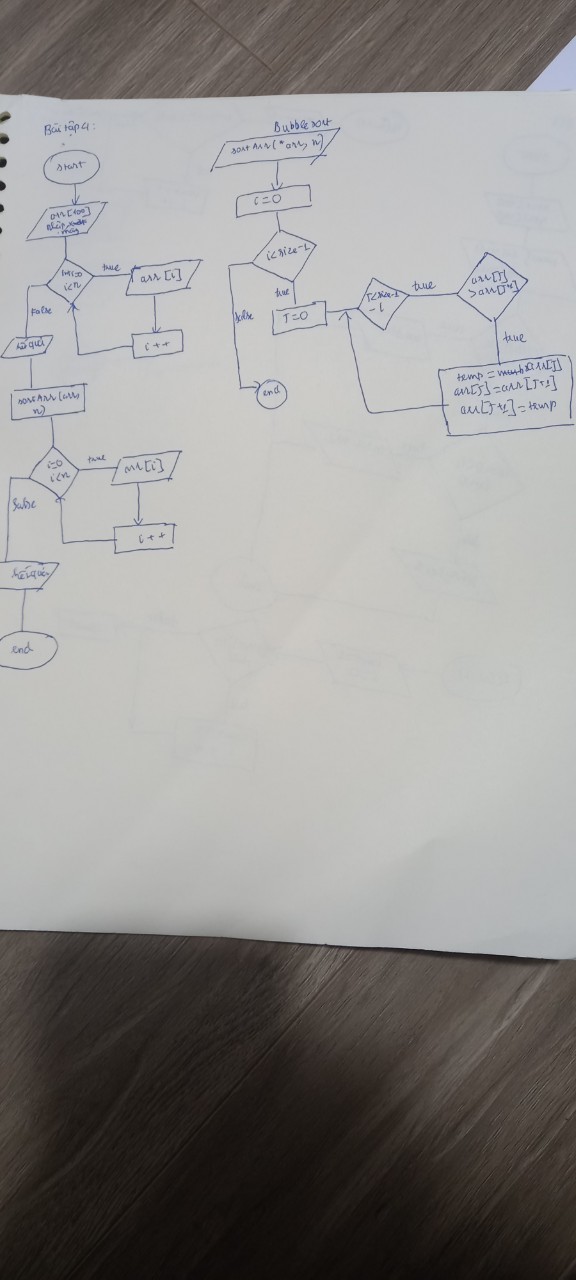 Bài tập 4:
start
arr[100]
nhập
mảng
i=0
i<n
true
arr[i]
i++
false
sortArr(arr,
n)
i=0
i<n
true
arr[i]
i++
false
end
Bubble sort
sortArr(*arr, n)
i=0
i<size-1
false
true
end
J=0
J<size-1
-i
true
arr[J]
>arr[J+1]
true
temp=arr[J]
arr[J]=arr[J+1]
arr[J+1]=temp